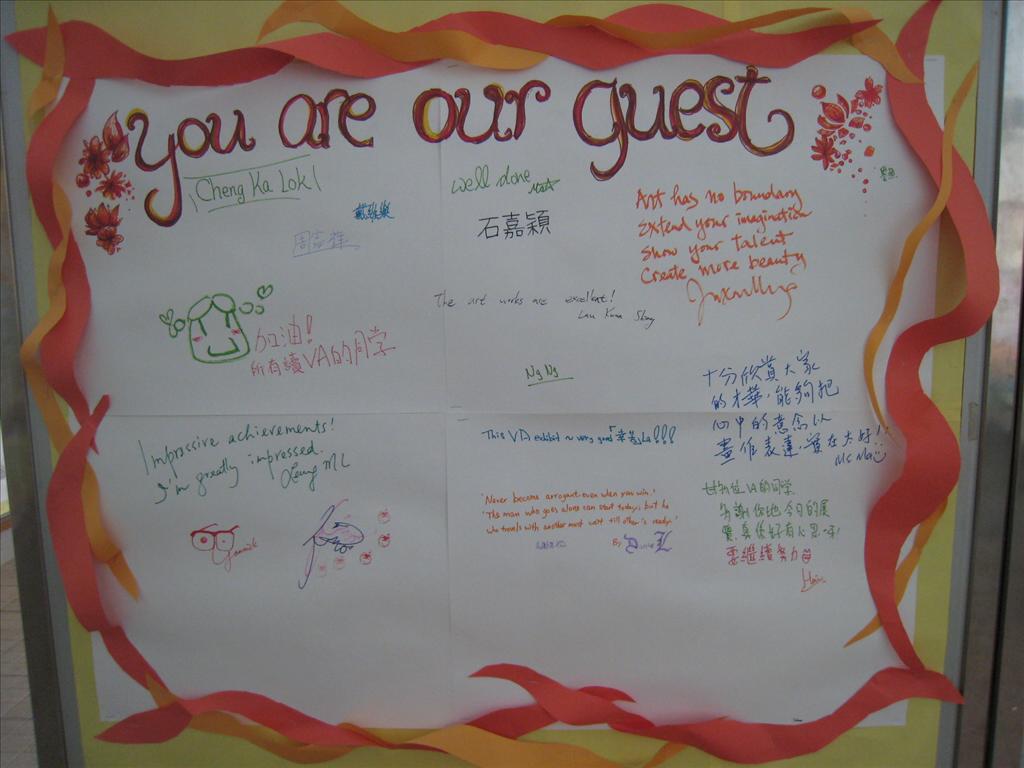 you are our guest
Cheng Ka Lok
well done
石嘉穎
Art has no boundary
Extend your imagination
Show your talent
Create more beauty
The art works are excellent!
Lau Kwun Shing
加油!
所有讀VA的同学
Ng Ng
十分欣賞大家
的才華,能夠把
心中的意念以
畫作表達,實在太好!!
Ms Ma
Impressive achievements!
I'm greatly impressed.
Leung ML
This VA exhibit very good
'Never become arrogant even when you win.'
'The man who goes alone can start today; but he
who travels with another must wait till other is ready.'
By
各位VA的同学
多謝你地今日的展
覽,真係好有心思呀!
要繼續努力